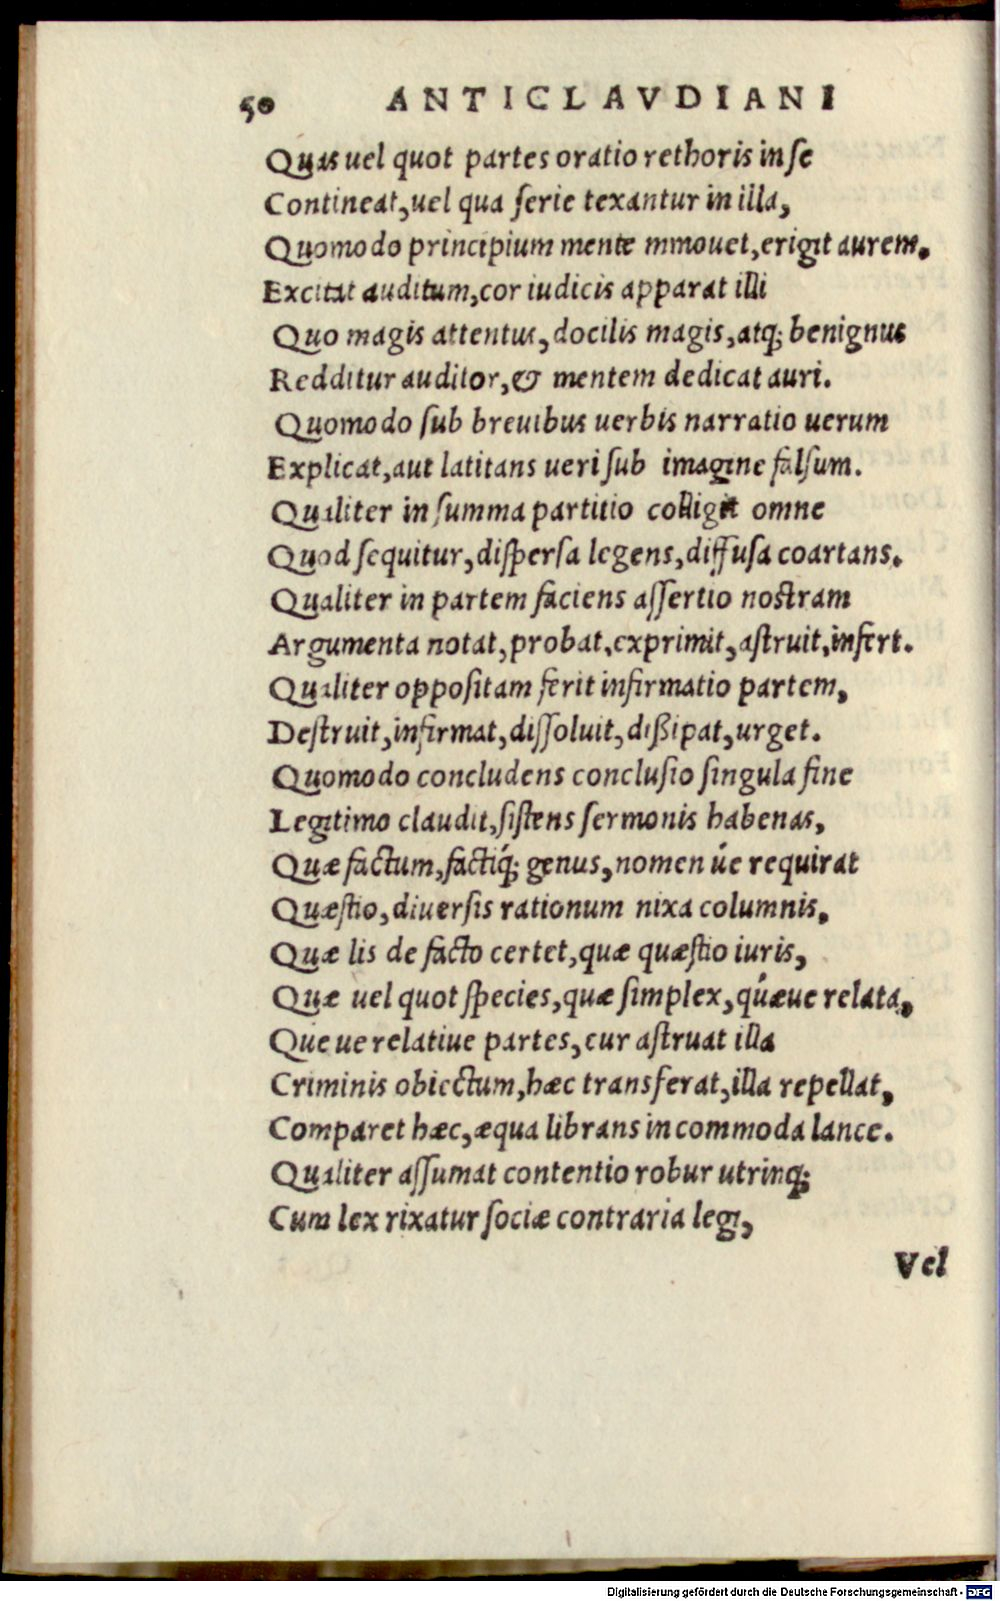 50 ANTICLAVDIANI
Quas uel quot partes oratio rethoris in se
Contineat, uel qua serie texantur in illa,
Quomodo principium mente mmouet, erigit aurem.
Excitat auditum, cor iudicis apparat illi
Quo magis attentus, docilis magis, atq; benignus
Redditur auditor, & mentem dedicat auri.
Quomodo sub breuibus uerbis narratio uerum
Explicat, aut latitans ueri sub imagine falsum.
Qualiter in summa partitio colligit omne
Quod sequitur, dispersa legens, diffusa coartans.
Qualiter in partem faciens assertio nostram
Argumenta notat, probat, exprimit, astruit, infert.
Qualiter oppositam ferit infirmatio partem,
Destruit, infirmat, dissoluit, dißipat, urget.
Quomodo concludens conclusio singula fine
Legitimo claudit, sistens sermonis habenas,
Quæ factum, factiq́; genus, nomen úe requirat
Quæstio, diuersis rationum nixa columnis,
Quæ lis de facto certet, quæ quæstio iuris,
Quæ uel quot species, quæ simplex, quǽue relata,
Que ue relatiue partes, cur astruat illa
Criminis obiectum, hæc transferat, illa repellat,
Comparet hæc, æqua librans incommoda lance.
Qualiter assumat contentio robur utrinq;
Cum lex rixatur sociæ contraria legi,
Vel
Digitalisierung gefördert durch die Deutsche Forschungsgemeinschaft - DFG